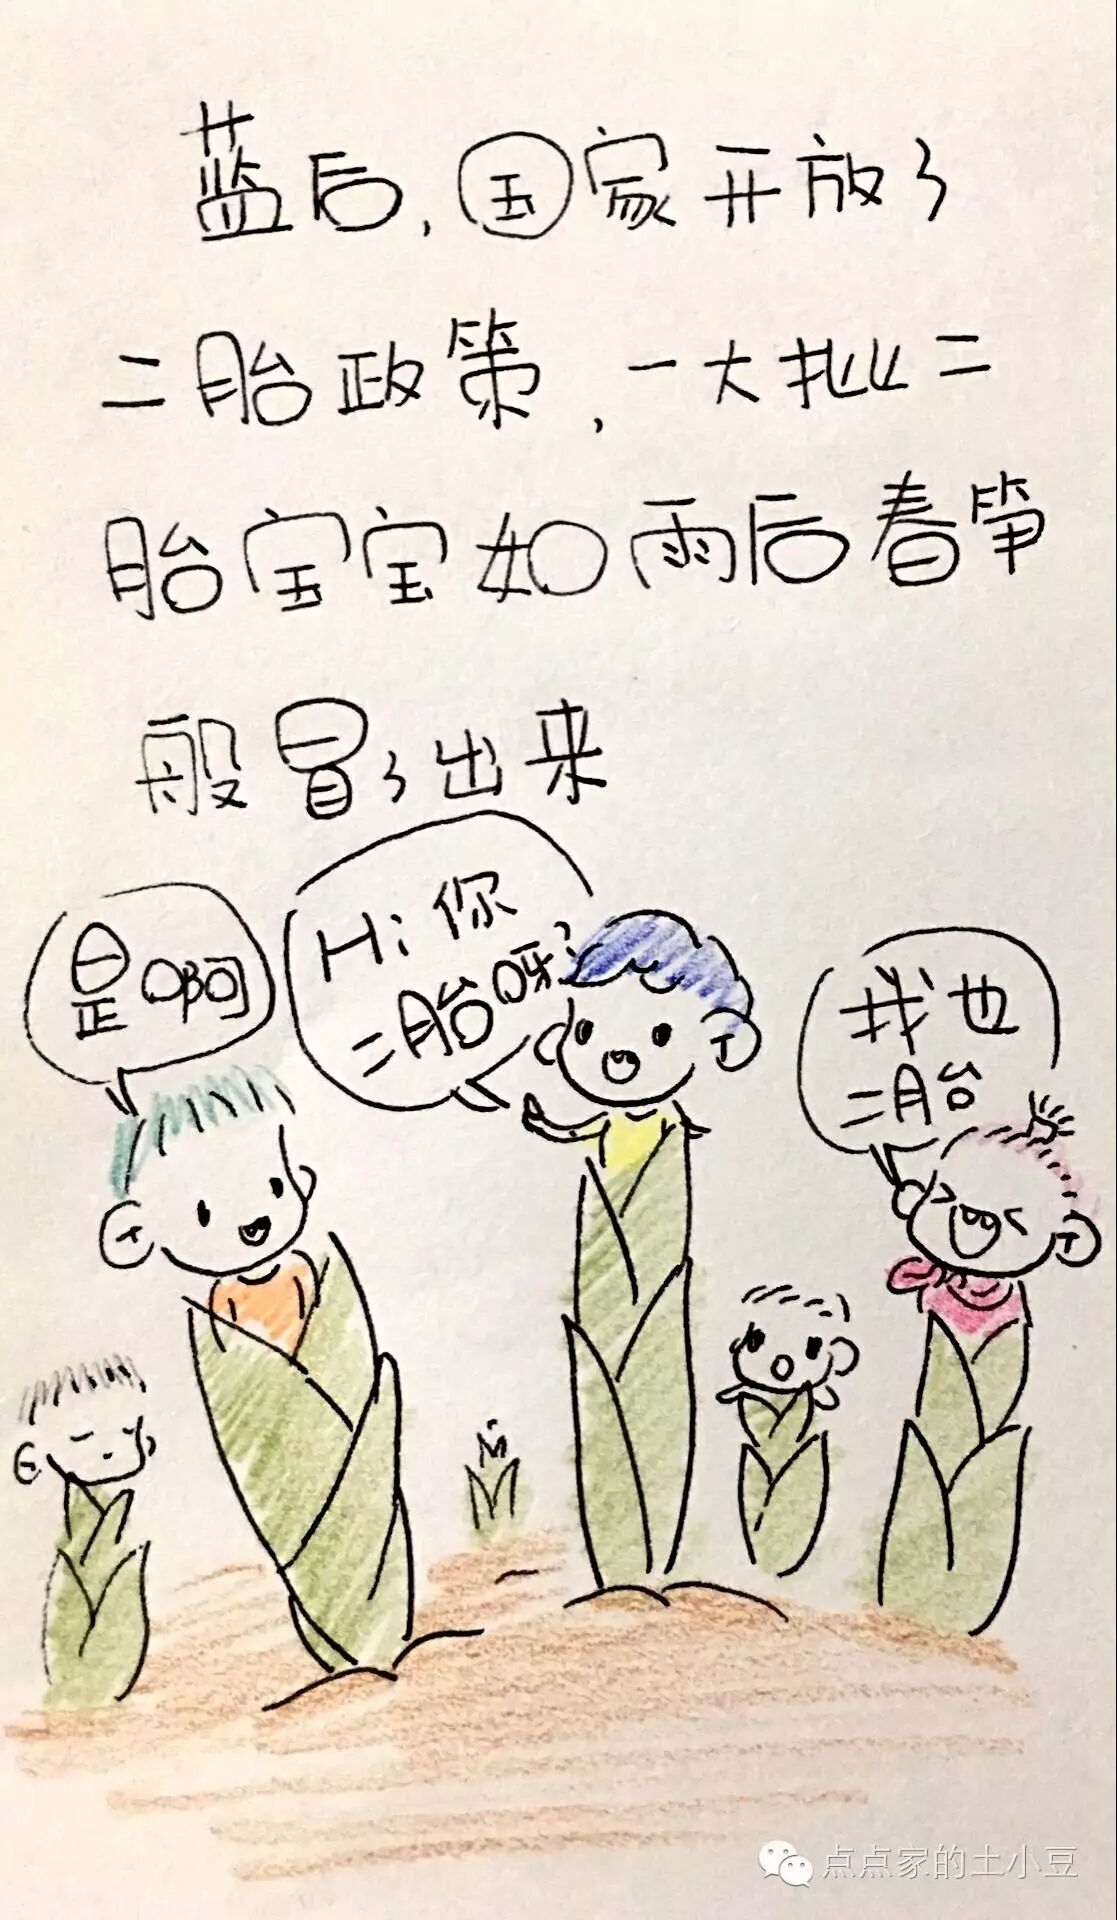 蓝后,国家开放了
二胎政策,一大批二
胎宝宝如雨后春笋
般冒了出来
是啊
Hi你
二胎呀?
我也
二胎
点点家的土小豆